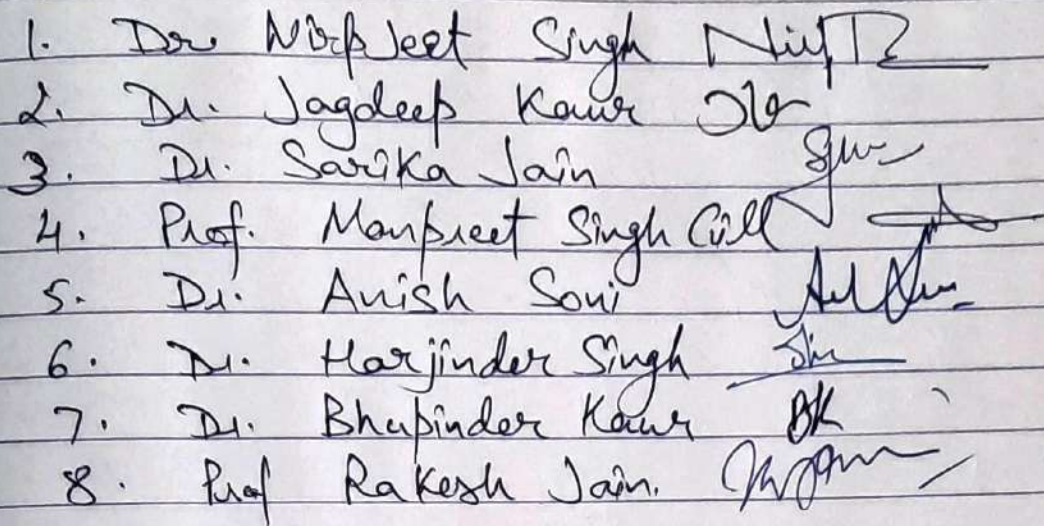 1. Dr Nirpjeet Singh
2. Dr. Jagdeep Kaur
3. Dr. Sarika Jain
4. Prof. Manpreet Singh Gill
5. Dr. Anish Soni
6. Dr. Harjinder Singh
7. Dr. Bhupinder Kaur BK
8. Prof Rakesh Jain.